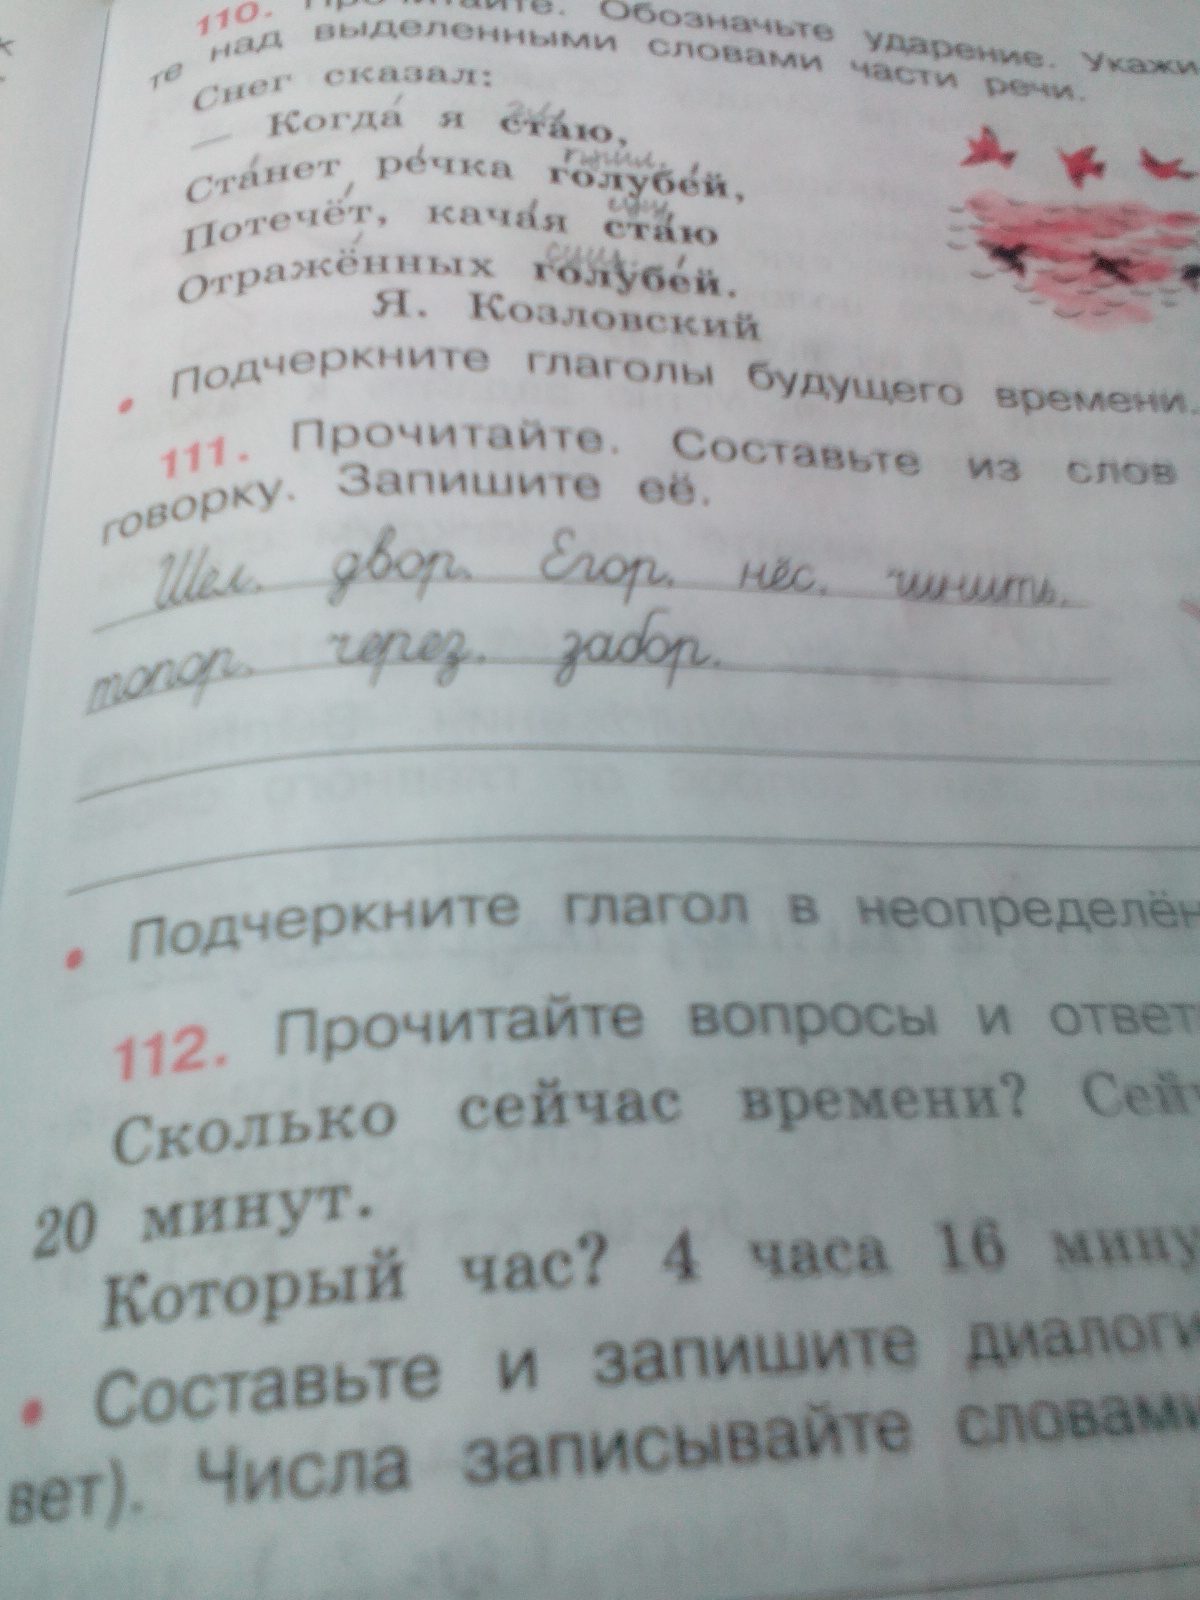 110. Прочитайте. Обозначьте ударение. Укажи-
те над выделенными словами части речи.
Снег сказал:
— Когда́ я ста́ю,
Ста́нет ре́чка голубе́й,
Потечёт, кача́я ста́ю
Отражённых голубе́й.
Я. Козловский
• Подчеркните глаголы будущего времени.
111. Прочитайте. Составьте из слов
говорку. Запишите её.
Шел. двор. Егор. нёс. чинить.
топор. через. забор.
• Подчеркните глагол в неопределён
112. Прочитайте вопросы и ответ
Сколько сейчас времени? Сей
20 минут.
Который час? 4 часа 16 мину
• Составьте и запишите диалоги
вет). Числа записывайте словами